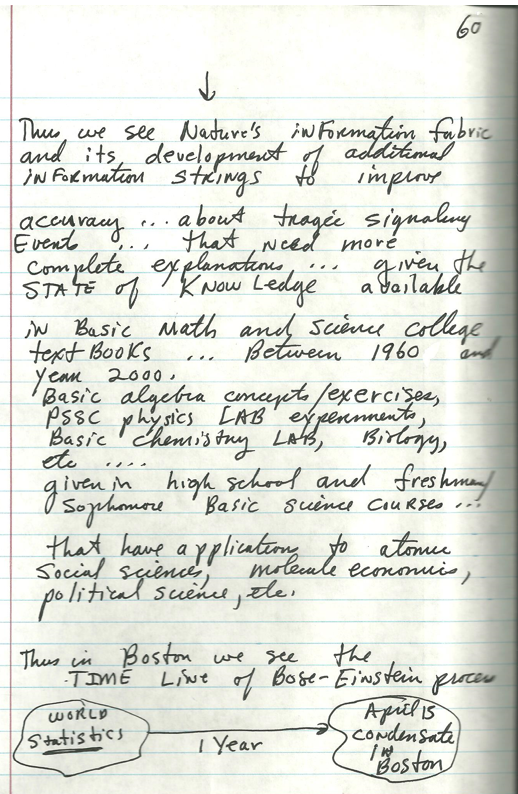 60
↓
Thus we see Nature's inFormation fabric
and its development of additional
inFormation strings to improve
accuracy ... about tragic signaling
Events ... that need more
complete explanations ... given the
STATE of KNOWLedge available
in Basic Math and Science college
text BOOKS ... Between 1960 and
year 2000.
Basic algebra concepts/exercises,
PSSC physics LAB experiments,
Basic Chemistry LAB, Biology,
etc ....
given in high school and freshmen/
Sophomore Basic science courses ...
that have application to atomic
Social sciences, molecule economics,
political science, etc.
Thus in Boston we see the
TIME Line of Bose-Einstein process
WORLD
Statistics
1 Year
April 15
condensate
IN
Boston